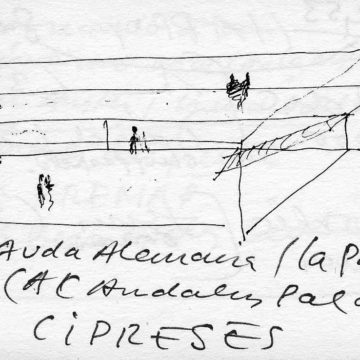 Avda Alemana / la Pa
(AC Andalus Pala
CIPRESES